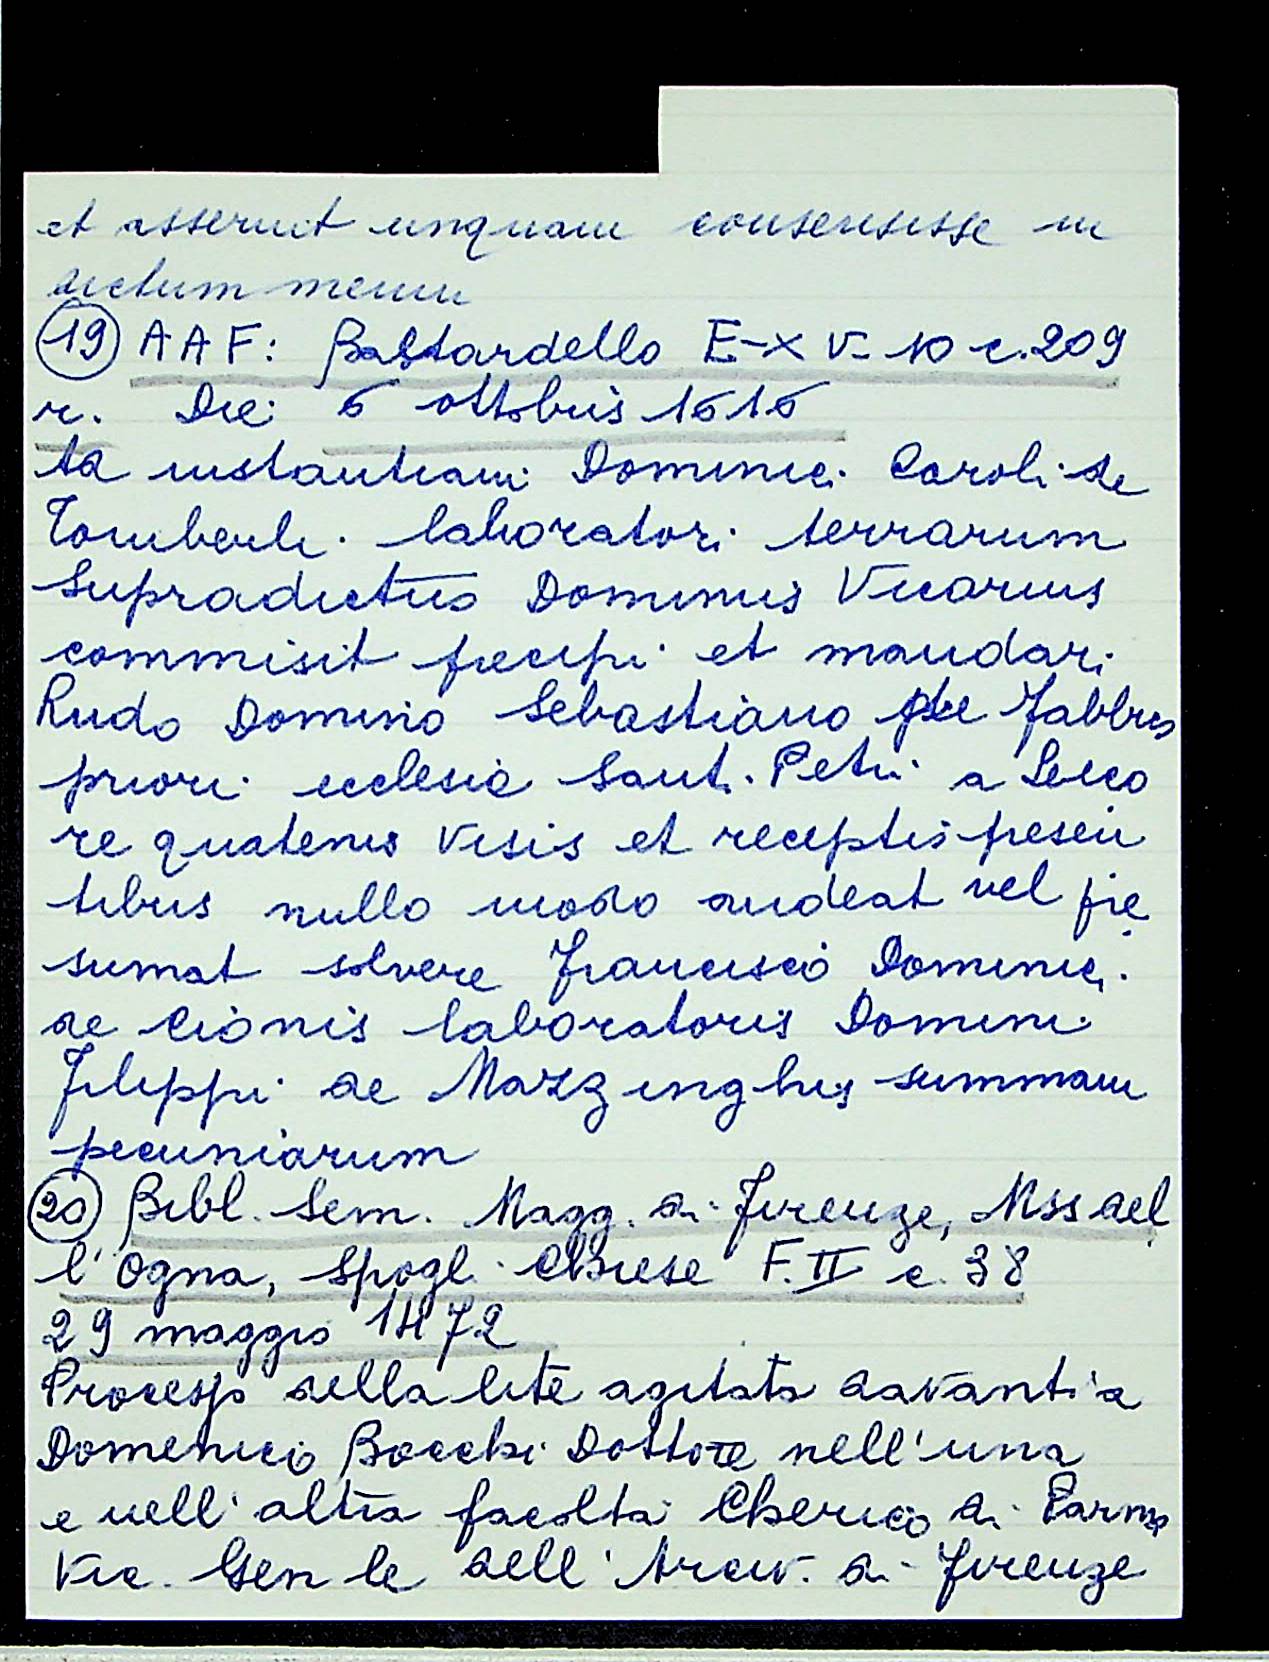 et asseruit unquam consensisse in
dictum menm
(19) AAF: Bastardello E-XV-10 c. 209
r. Die: 6 ottobris 1616
ta instantiam Dominici Caroli de
Tomberli laboratori terrarum
Supradictus Dominus Vicarius
commisit precipi et mandari
Rudo Domino Sebastiano de Fabbris
priori ecclesie Santi Petri a Seico
re quatenus visis et receptis presen
tibus nullo modo audeat vel pre
sumat solvere Francisco Dominici
de Cionis laboratoris Domini
Filippi de Mazzinghis summam
pecuniarum
(20) Bibl. Sem. Magg. di Firenze, Mss del
l'Ogna, Spogl. Chiese F. II c. 38
29 maggio 1472
Processo della lite agitata davanti a
Domenico Bocchi Dottore nell'una
e nell'altra facolta Cherico di Parma
Vic. Gen le dell'Arciv. di Firenze